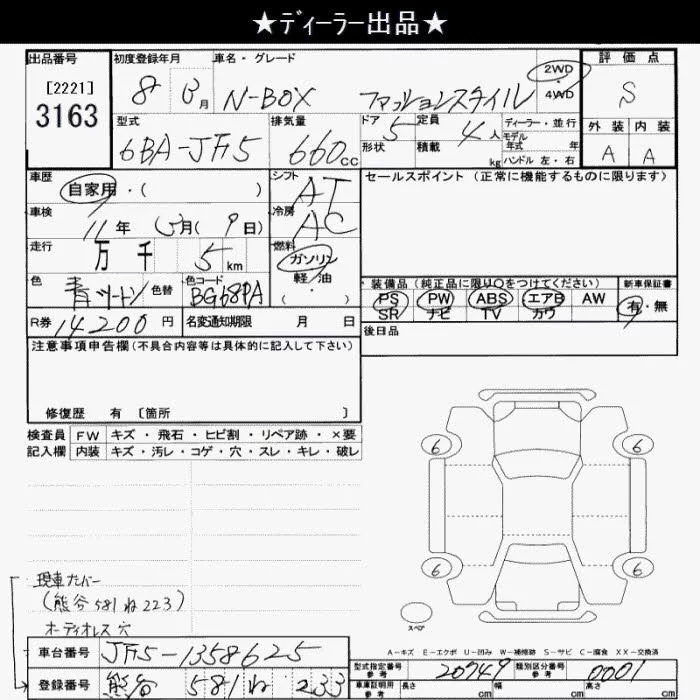 ★ディーラー出品★
出品番号 初度登録年月 車名・グレード 評価点
[2221]
3163
8 月 N-BOX ファッションスタイル 2WD・4WD S
型式 排気量 ドア 定員 ディーラー・並行 外装 内装
6BA-JF5 660cc 5 4人 モデル年式 年 A A
形状 積載 kg ハンドル 左・右
車歴 シフト セールスポイント (正常に機能するものに限ります)
自家用・( ) AT
車検 冷房
11年 月( 9日) AC
走行 万 千 5km 燃料 ガソリン・軽油・( )
色 色替 色コード 装備品 (純正品に限り○をつけてください) 新車保証書
青ツートン BG68PA PS PW ABS エアB AW 有・無
SR ナビ TV カワ
R券 14200円 名変通知期限 月 日 後日品
注意事項申告欄 (不具合内容等は具体的に記入して下さい)
修復歴 有 〔箇所 〕
検査員 FW キズ・飛石・ヒビ割・リペア跡・×要
記入欄 内装 キズ・汚レ・コゲ・穴・スレ・キレ・破レ
6 6
6 6
現車ナンバー
(熊谷581ね223)
オーディオレス穴
スペア
A-キズ E-エクボ U-凹み W-補修跡 S-サビ C-腐食 XX-交換済
車台番号 JF5-1358625
型式指定番号 参考 20749 類別区分番号 参考 0001
登録番号 熊谷 581ね 233
車庫証明用 参考 長さ cm 幅 cm 高さ cm